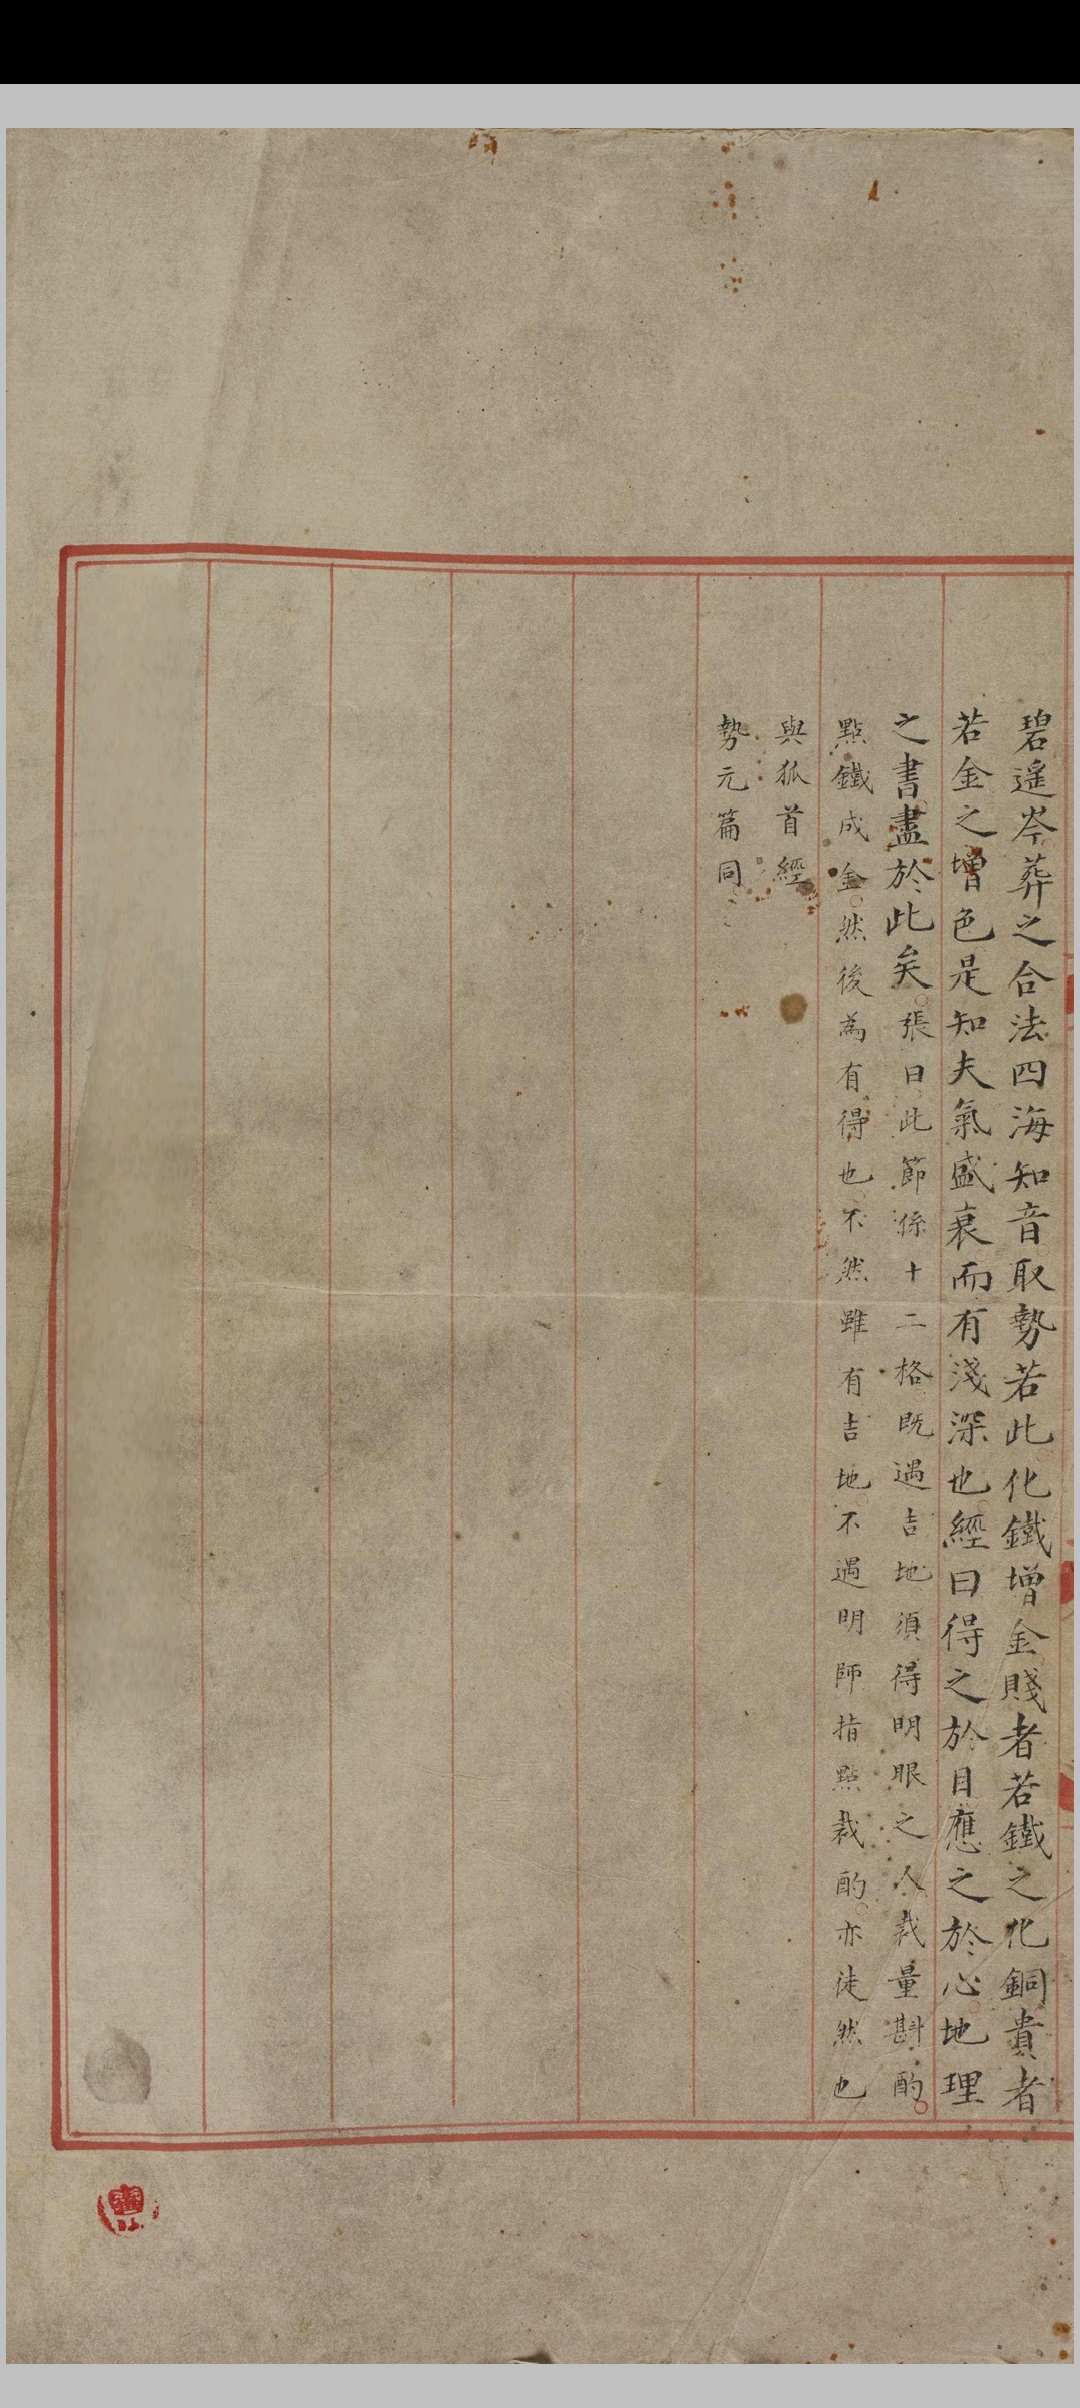 碧遥岑葬之合法四海知音取勢若此化鐵增金賤者若鐵之化銅貴者
若金之增色是知夫氣盛衰而有淺深也經曰得之於目應之於心地理
之書盡於此矣張曰此節係十二格既遇吉地須得明眼之人裁量斟酌
點鐵成金然後為有得也不然雖有吉地不遇明師指點裁酌亦徒然也
與狐首經
勢元篇同